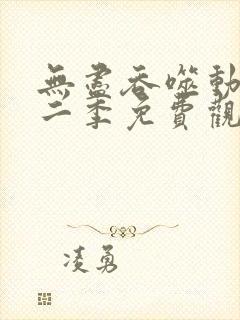 無盡吞噬動
二季免費觀
凌勇